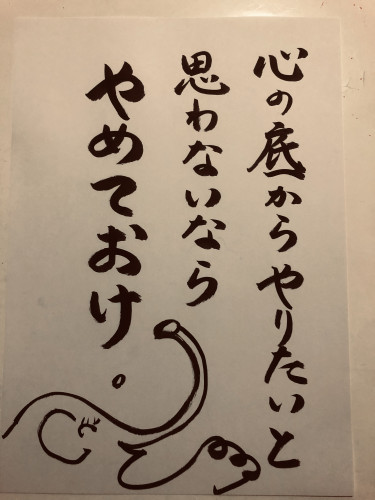 心の底からやりたいと
思わないなら
やめておけ。